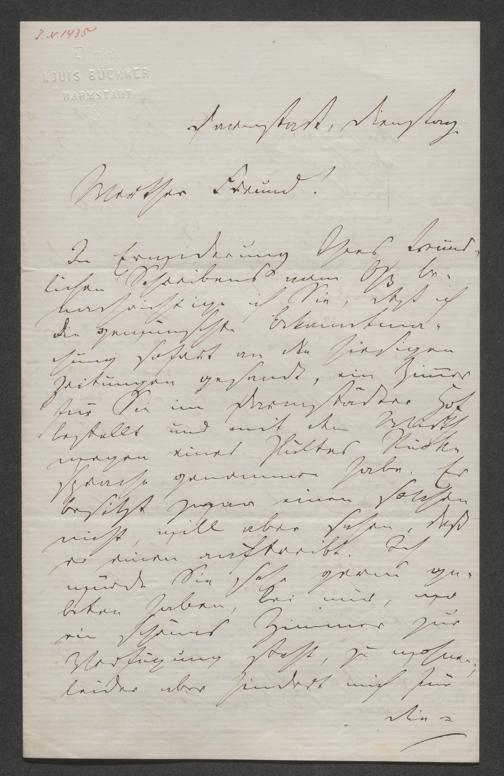 J. N. 1435
LOUIS BÜCHNER
DARMSTADT
Darmstadt, Dienstag.
Werther Freund!
In Erwiederung Ihres freund-
lichen Schreibens vom be-
nachrichtige ich Sie, daß ich
die gewünschte Bekanntma-
chung sofort an die hiesigen
Zeitungen gesandt, ein Zimmer
für Sie im Darmstädter Hof
bestellt und mit dem Wirth
wegen eines Pultes Rück-
sprache genommen habe. Er
besitzt zwar einen solchen
nicht, will aber sehen, daß
er einen auftreibt. Ich
würde Sie sehr gerne ge-
beten haben, bei mir, wo
ein schönes Zimmer zur
Verfügung steht, zu wohnen;
leider aber hindert mich für
die-